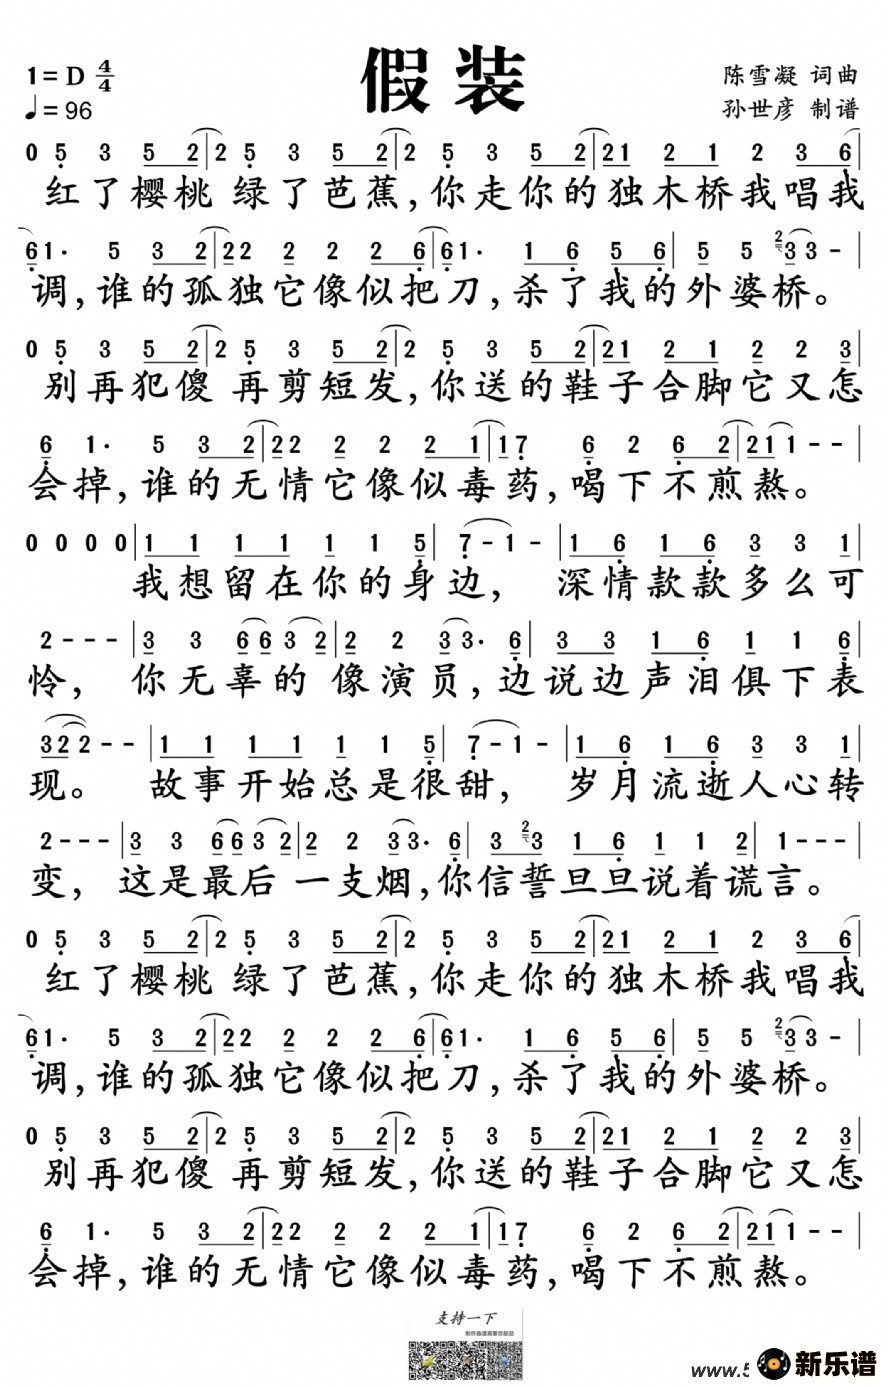 1=D 4/4
假装
陈雪凝 词曲
♩=96
孙世彦 制谱
0 5 3 5 2 | 2 5 3 5 2 | 2 5 3 5 2 | 2 2 1 2 1 2 3 6
红了樱桃 绿了芭蕉,你走你的独木桥我唱我
6 1· 5 3 2 | 2 2 2 2 2 6 | 6 1· 1 6 5 6 | 5 5 2 3 3 - |
调,谁的孤独它像似把刀,杀了我的外婆桥。
0 5 3 5 2 | 2 5 3 5 2 | 2 5 3 5 2 | 2 1 2 1 2 2 3 |
别再犯傻 再剪短发,你送的鞋子合脚它又怎
6 1· 5 3 2 | 2 2 2 2 2 1 | 1 7 6 2 6 2 | 2 1 1 - - |
会掉,谁的无情它像似毒药,喝下不煎熬。
0 0 0 0 | 1 1 1 1 1 1 5 | 7 - 1 - | 1 6 1 6 3 3 1 |
我想留在你的身边, 深情款款多么可
2 - - - | 3 3 6 6 3 2 | 2 2 3 3· 6 | 3 3 1 6 1 1 6 |
怜, 你无辜的 像演员,边说边声泪俱下表
3 2 2 - - | 1 1 1 1 1 1 5 | 7 - 1 - | 1 6 1 6 3 3 1 |
现。 故事开始总是很甜, 岁月流逝人心转
2 - - - | 3 3 6 6 3 2 | 2 2 3 3· 6 | 3 2 3 1 6 1 1 2 | 1 - - - |
变, 这是最后 一支烟,你信誓旦旦说着谎言。
0 5 3 5 2 | 2 5 3 5 2 | 2 5 3 5 2 | 2 2 1 2 1 2 3 6
红了樱桃 绿了芭蕉,你走你的独木桥我唱我
6 1· 5 3 2 | 2 2 2 2 2 6 | 6 1· 1 6 5 6 | 5 5 2 3 3 - |
调,谁的孤独它像似把刀,杀了我的外婆桥。
0 5 3 5 2 | 2 5 3 5 2 | 2 5 3 5 2 | 2 1 2 1 2 2 3 |
别再犯傻 再剪短发,你送的鞋子合脚它又怎
6 1· 5 3 2 | 2 2 2 2 2 1 | 1 7 6 2 6 2 | 2 1 1 - - |
会掉,谁的无情它像似毒药,喝下不煎熬。
支持一下
制作曲谱需要您鼓励
www.5
新乐谱